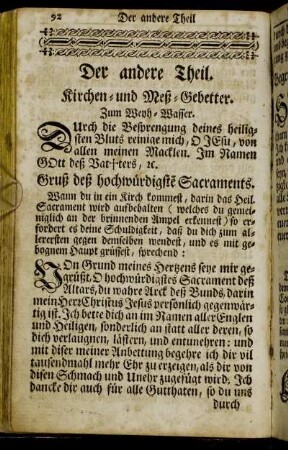 92 Der andere Theil
Der andere Theil.
Kirchen- und Meß-Gebetter.
Zum Weyh-Wasser.
Durch die Besprengung deines heilig-
sten Bluts reinige mich, O JEsu, von
allen meinen Macklen. Im Namen
GOtt deß Vat†ters, ꝛc.
Gruß deß hochwürdigstē Sacraments.
Wann du in ein Kirch kommest, darin das Heil.
Sacrament wird aufbehalten (welches du gemei-
niglich an der brinnenden Ampel erkennest) so er-
fordert es deine Schuldigkeit, daß du dich zum al-
lerersten gegen demselben wendest, und es mit ge-
bognem Haupt grüssest, sprechend:
VOn Grund meines Hertzens seye mir ge-
grüßt, O hochwürdigstes Sacrament deß
Altars, du wahre Arck deß Bunds, darin
mein Herr Christus Jesus persönlich gegenwär-
tig ist. Ich bette dich an im Namen aller Englen
und Heiligen, sonderlich an statt aller deren, so
dich verlaugnen, lästern, und entunehren: und
mit diser meiner Anbettung begehre ich dir vil
tausendmahl mehr Ehr zu erzeigen, als dir von
disen Schmach und Unehr zugefügt wird. Ich
dancke dir auch für alle Gutthaten, so du uns
durch